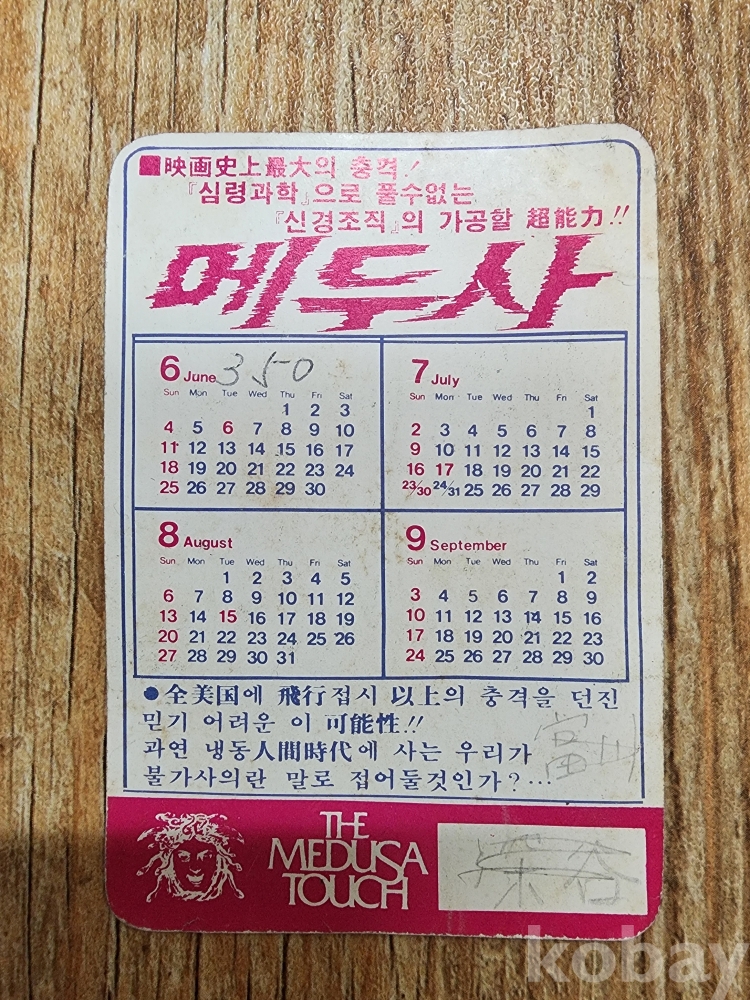 ■映画史上最大의 충격!
『심령과학』으로 풀수없는
『신경조직』의 가공할 超能力!!
메두사
6 June 350
Sun Mon Tue Wed Thu Fri Sat
1 2 3
4 5 6 7 8 9 10
11 12 13 14 15 16 17
18 19 20 21 22 23 24
25 26 27 28 29 30
7 July
Sun Mon Tue Wed Thu Fri Sat
1
2 3 4 5 6 7 8
9 10 11 12 13 14 15
16 17 18 19 20 21 22
23/30 24/31 25 26 27 28 29
8 August
Sun Mon Tue Wed Thu Fri Sat
1 2 3 4 5
6 7 8 9 10 11 12
13 14 15 16 17 18 19
20 21 22 23 24 25 26
27 28 29 30 31
9 September
Sun Mon Tue Wed Thu Fri Sat
1 2
3 4 5 6 7 8 9
10 11 12 13 14 15 16
17 18 19 20 21 22 23
24 25 26 27 28 29 30
●全美国에 飛行접시 以上의 충격을 던진
믿기 어려운 이 可能性!!
과연 냉동人間時代에 사는 우리가
불가사의란 말로 접어둘것인가?…
THE
MEDUSA
TOUCH
深谷
kobay